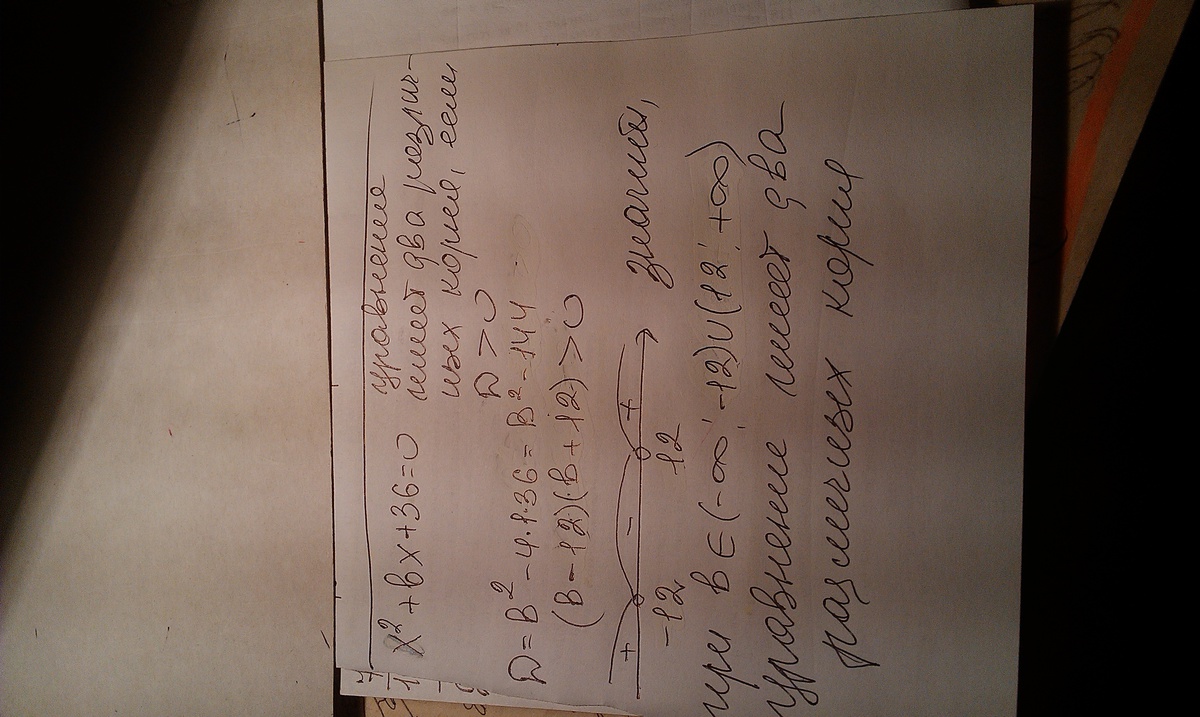 x² + bx + 36 = 0
уравнение
имеет два различ-
ных корня, если
D > 0
D = B² - 4·1·36 = B² - 144 >
(b - 12)(b + 12) > 0
+ - +
-12 12
значит,
при b ∈ (-∞; -12)∪(12; +∞)
уравнение имеет два
различных корня